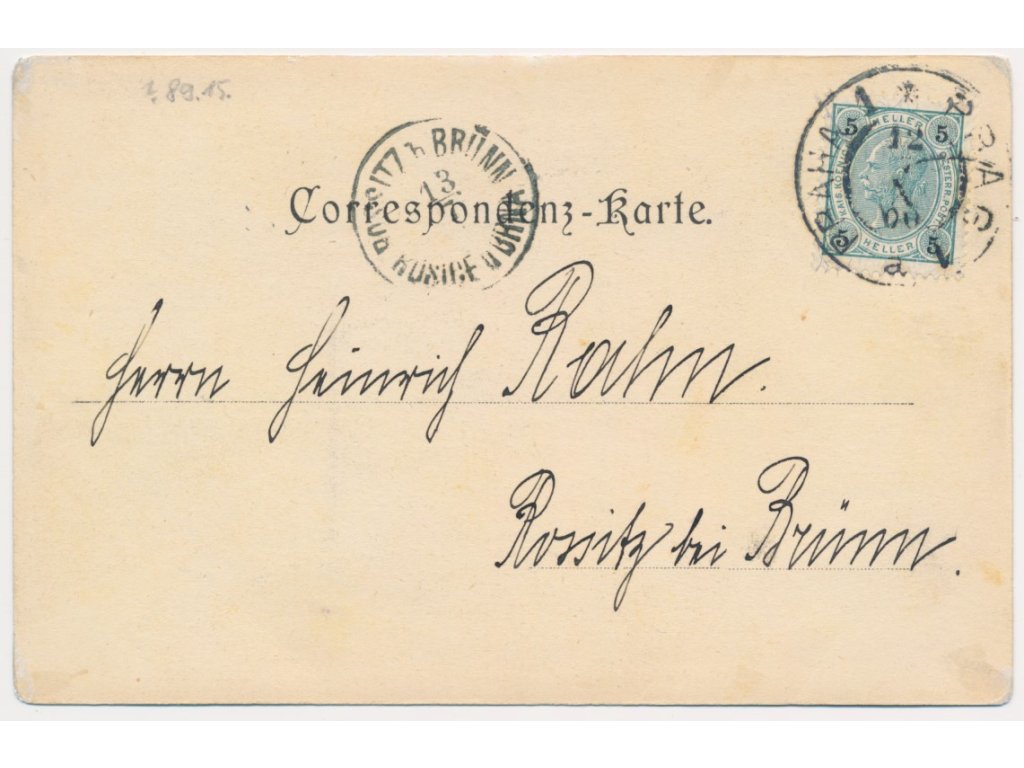 1. 89.15.
ROSSITZ b BRÜNN
13
ROSICE u BRNA
PRAHA 1 * PRAG
12
00
a
5 HELLER 5
5 HELLER 5
Correspondenz-Karte.
Herrn Heinrich Rahm.
Rossitz bei Brünn.